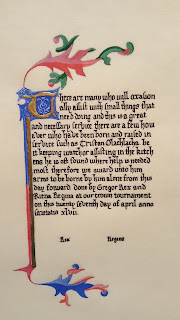 There are many who will occasion
ally assist with small things that
need doing and this is a great
and necessary service there are a few how
ever who have been born and raised in
service such as Tristan OSathlacha. be
it keeping watch or assisting in the kitch
ens he is oft found where help is needed
most therefore we award unto him
arms to be borne by him alone from this
day forward done by Gregor Rex and
Kiena Regina at crown tournament
on this twenty seventh day of april anno
societatis xlvii.
Rex Regina